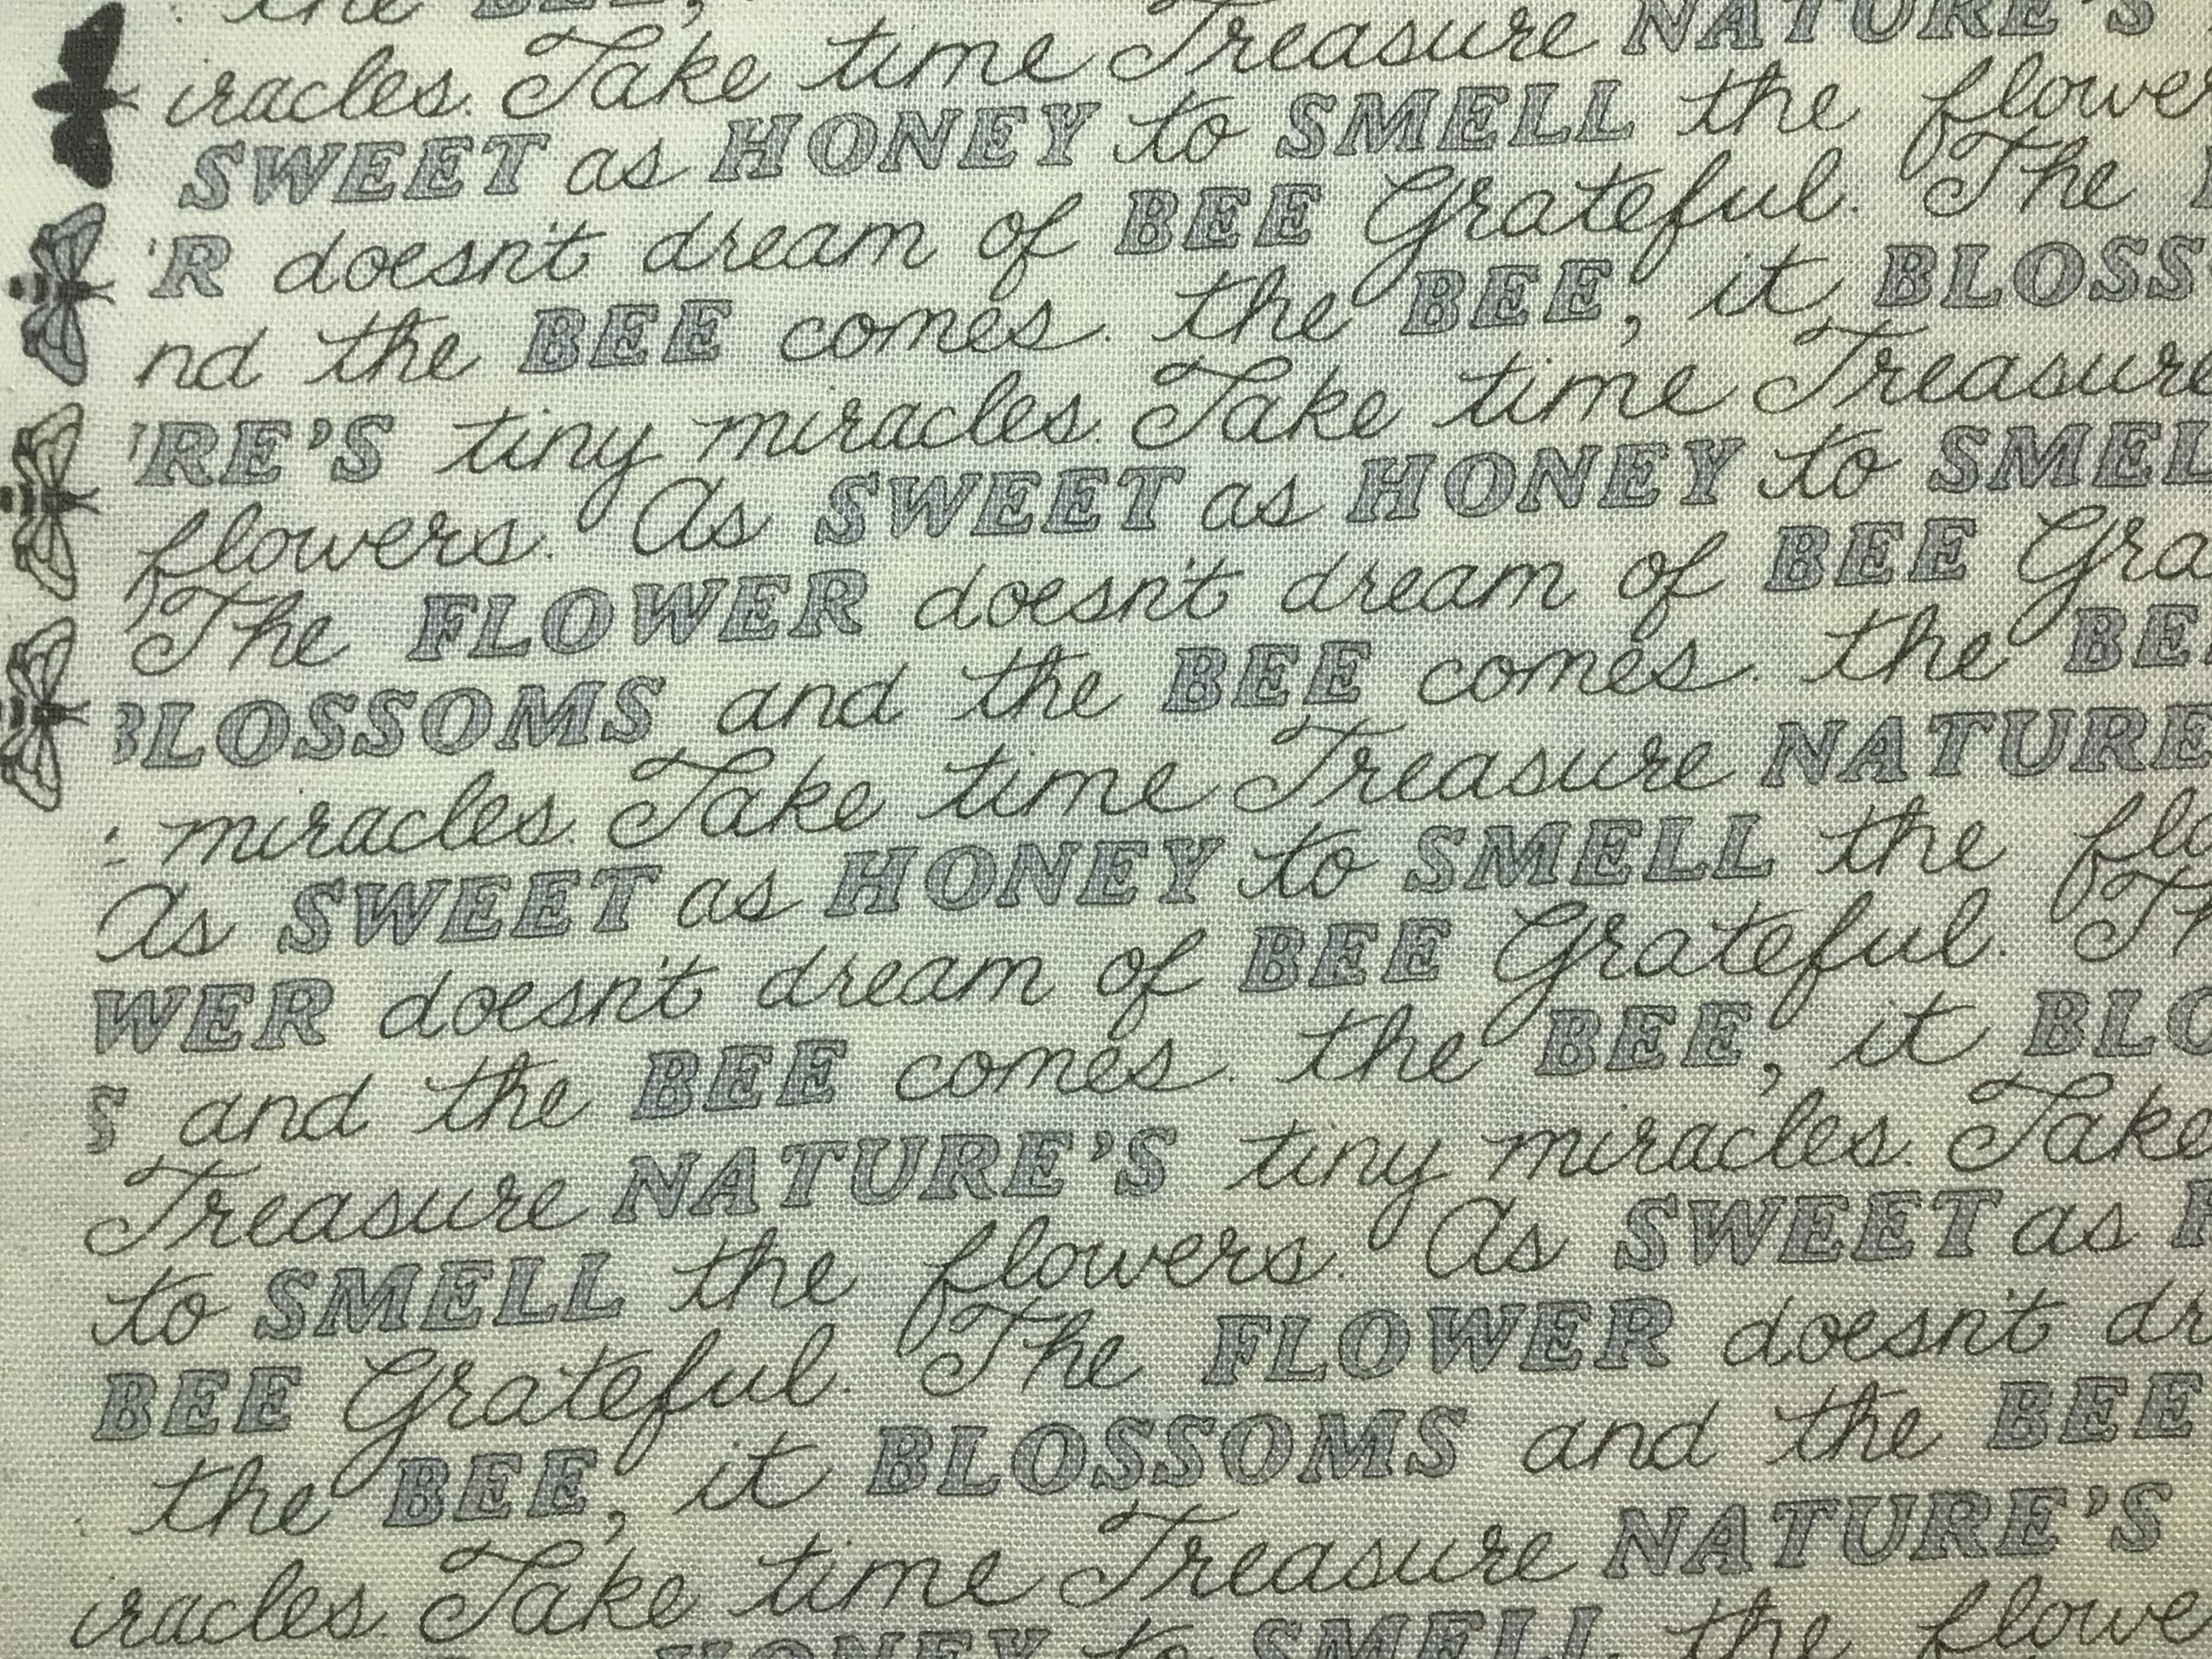 the BEE,
iracles. Take time Treasure NATURE'S
SWEET as HONEY to SMELL the flowe
'R doesn't dream of BEE Grateful. The
nd the BEE comes. the BEE, it BLOSS
RE'S tiny miracles. Take time Treasure
flowers. As SWEET as HONEY to SMEL
The FLOWER doesn't dream of BEE Gra
BLOSSOMS and the BEE comes. the BE
miracles. Take time Treasure NATURE
As SWEET as HONEY to SMELL the flo
WER doesn't dream of BEE Grateful. Th
S and the BEE comes. the BEE, it BLO
Treasure NATURE'S tiny miracles. Take
to SMELL the flowers. As SWEET as
BEE Grateful. The FLOWER doesn't dr
the BEE, it BLOSSOMS and the BEE
iracles. Take time Treasure NATURE'S
HONEY to SMELL the flowe